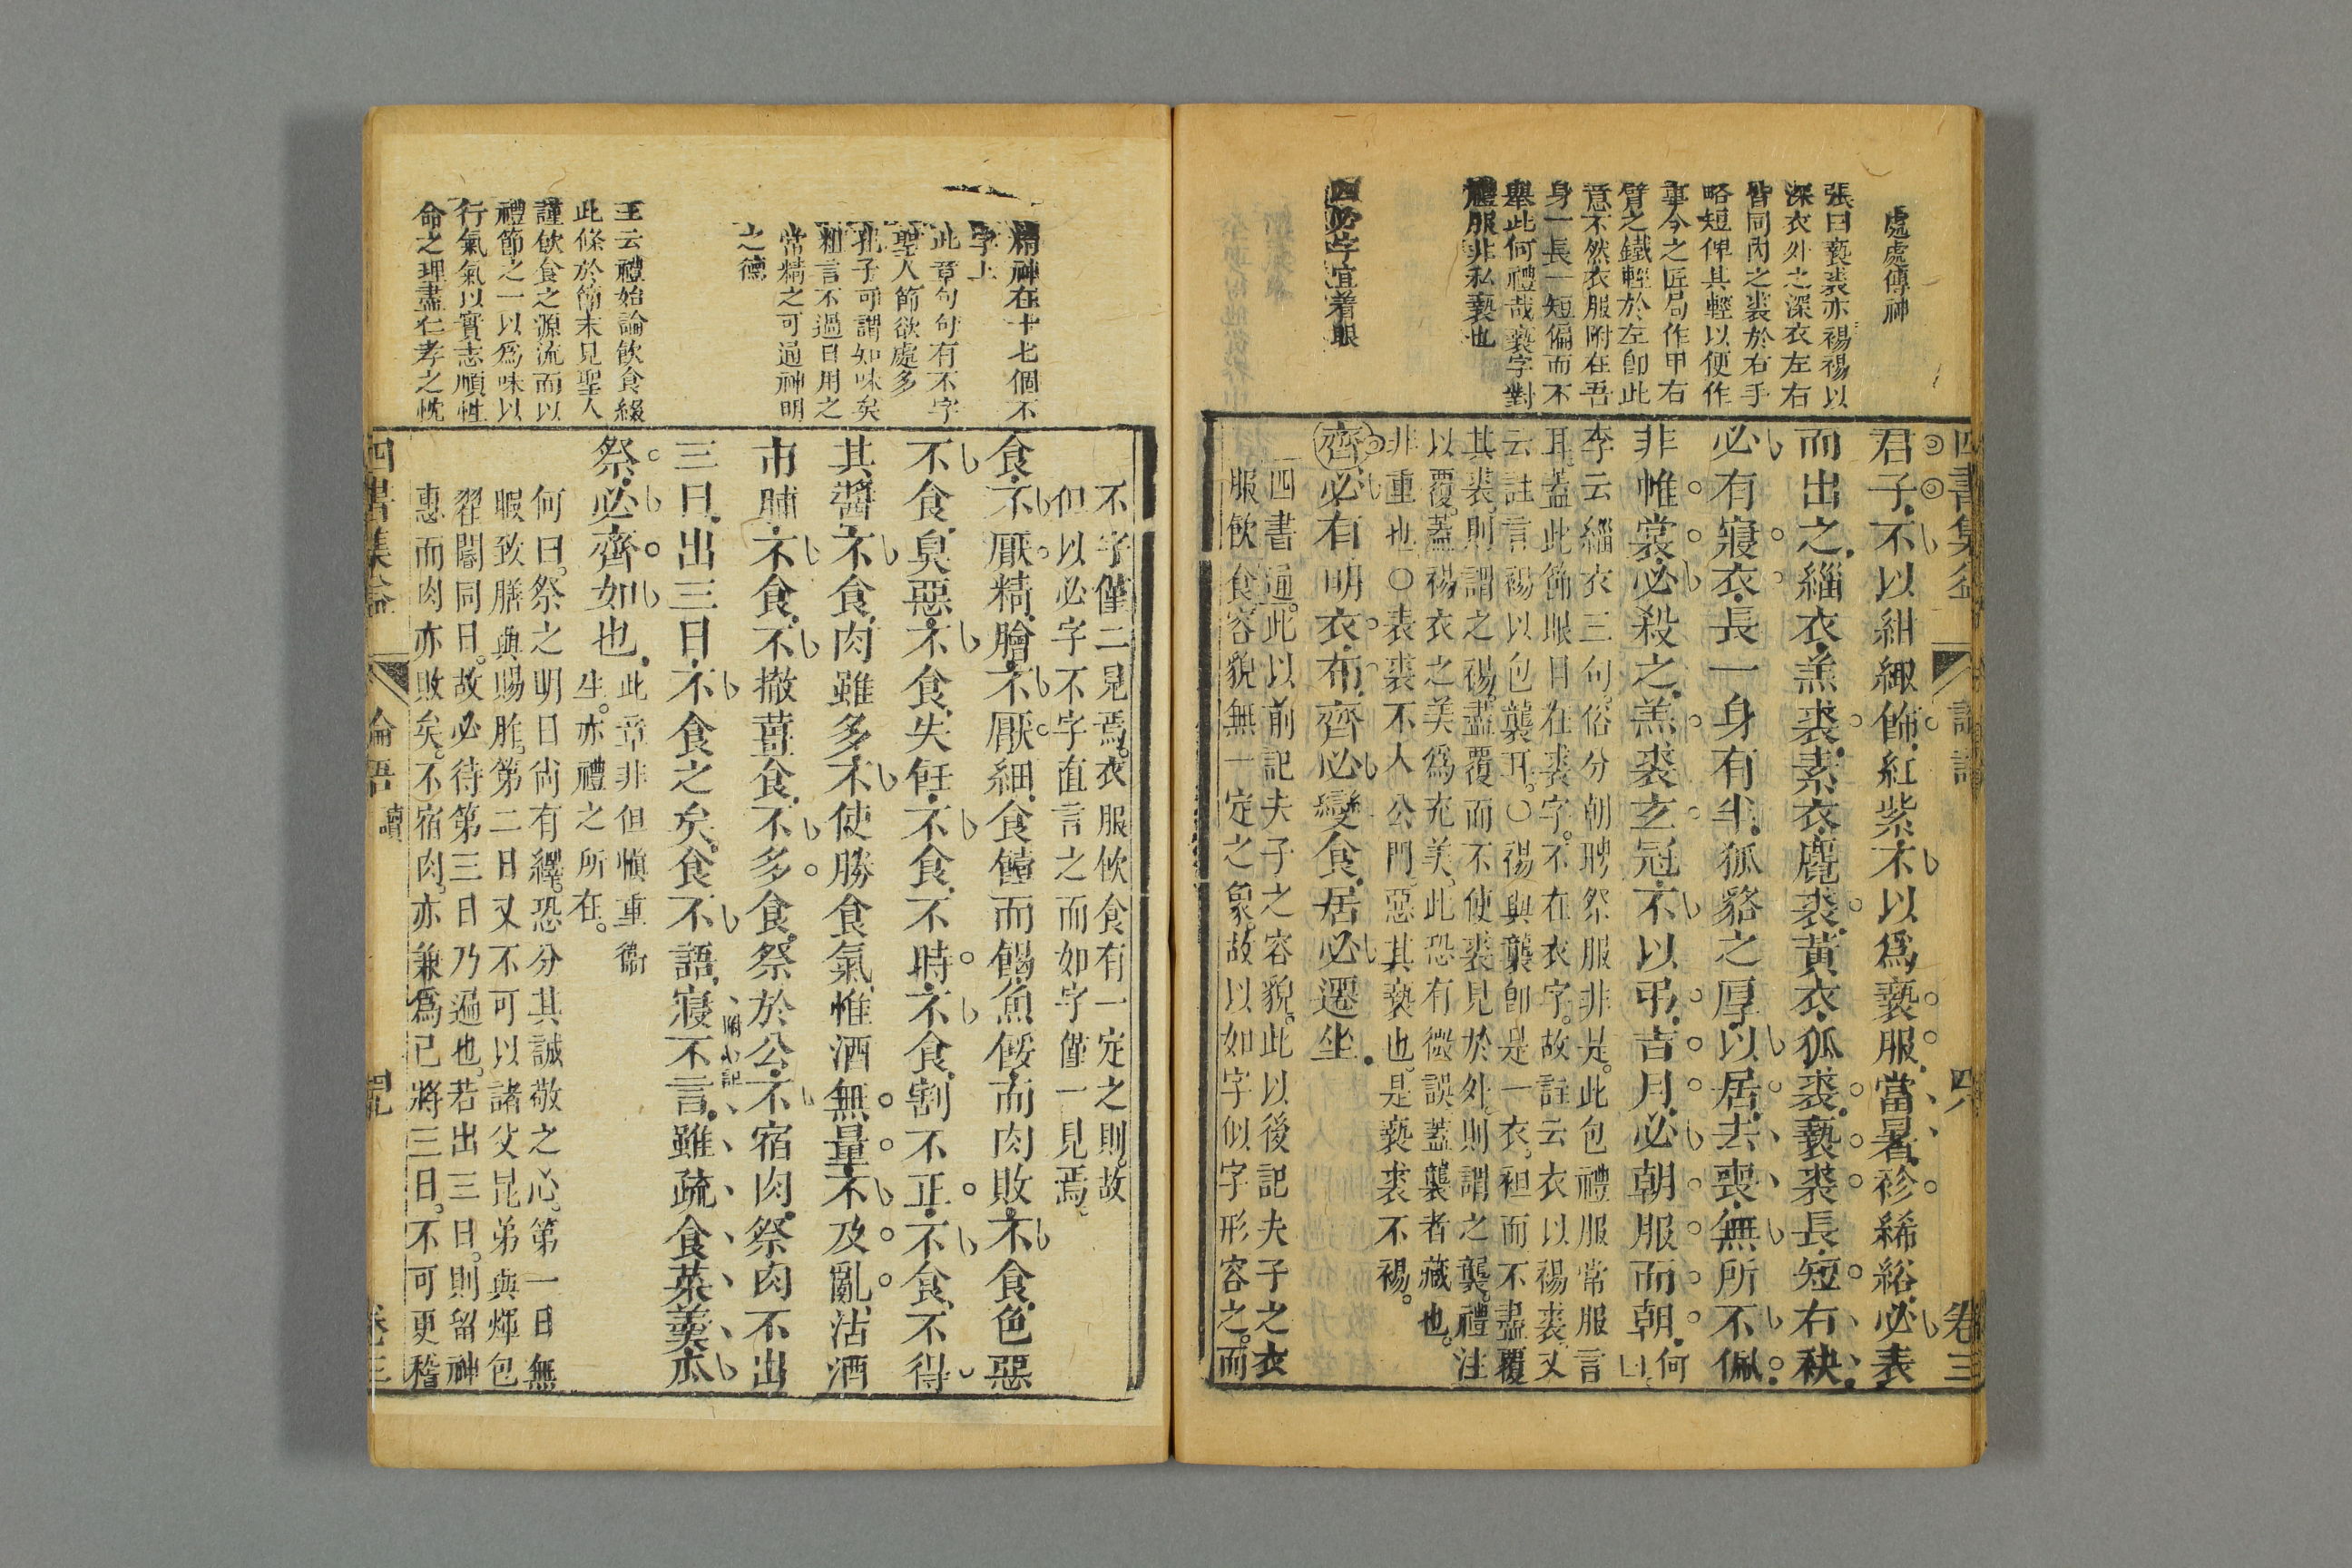 處處傳神
張曰褻裘亦裼裼以
深衣外之深衣左右
皆同內之裘於右手
略短俾其輕以便作
事今之匠局作甲右
臂之鐵輕於左卽此
意不然衣服附在吾
身一長一短偏而不
舉此何禮哉褻字對
禮服非私褻也
四必字宜着眼
四書集 論語 四 卷三
君子不以紺緅飾紅紫不以爲褻服當暑袗絺綌必表
而出之緇衣羔裘素衣麑裘黃衣狐裘褻裘長短右袂
必有寢衣長一身有半狐貉之厚以居去喪無所不佩
非帷裳必殺之羔裘玄冠不以弔吉月必朝服而朝何
李云緇衣三句俗分朝聘祭服非是。此包禮服常服言
耳蓋此節眼目在裘字。不在衣字。故註云衣以裼裘又
云註言裼以包襲耳。〇裼與襲卽是一衣。袒而不盡覆
其裘則謂之裼。盡覆而不使裘見於外則謂之襲。禮注
以覆。蓋裼衣之美爲充美。此恐有微誤蓋襲者藏也。
非重也〇表裘不入公門。惡其褻也。是褻裘不裼。
齊必有明衣布齊必變食居必遷坐
四書通。此以前記夫子之容貌。此以後記夫子之衣
服飲食容貌無一定之象。故以如字似字形容之。而
精神在十七個不
字上
此章句句有不字
聖人節欲處多
孔子可謂知味矣
粗言不過日用之
常精之可通神明
之德
王云禮始論飲食綴
此條於節末見聖人
謹飲食之源流而以
禮節之一以爲味以
行氣氣以實志順性
命之理盡仁孝之忱
不字僅二見焉。衣服飲食有一定之則故
但以必字不字直言之而如字僅一見焉。
食不厭精膾不厭細食饐而餲魚餒而肉敗不食色惡
不食臭惡不食失飪不食不時不食割不正不食不得
其醬不食肉雖多不使勝食氣惟酒無量不及亂沽酒
市脯不食不撤薑食不多食祭於公不宿肉祭肉不出
三日出三日不食之矣食不語寢不言雖疏食菜羹瓜
祭必齊如也此章非但愼重衞
生。亦禮之所在。
何曰。祭之明日尚有繹。恐分其誠敬之心。第一日無
暇致膰與賜胙。第二日又不可以諸父昆弟與煇包
翟閽同日。故必待第三日乃遍也。若出三日。則留神
惠而肉亦敗矣。不宿肉。亦兼爲已將三日。不可更稽
四書集益 論語 讀 卷三